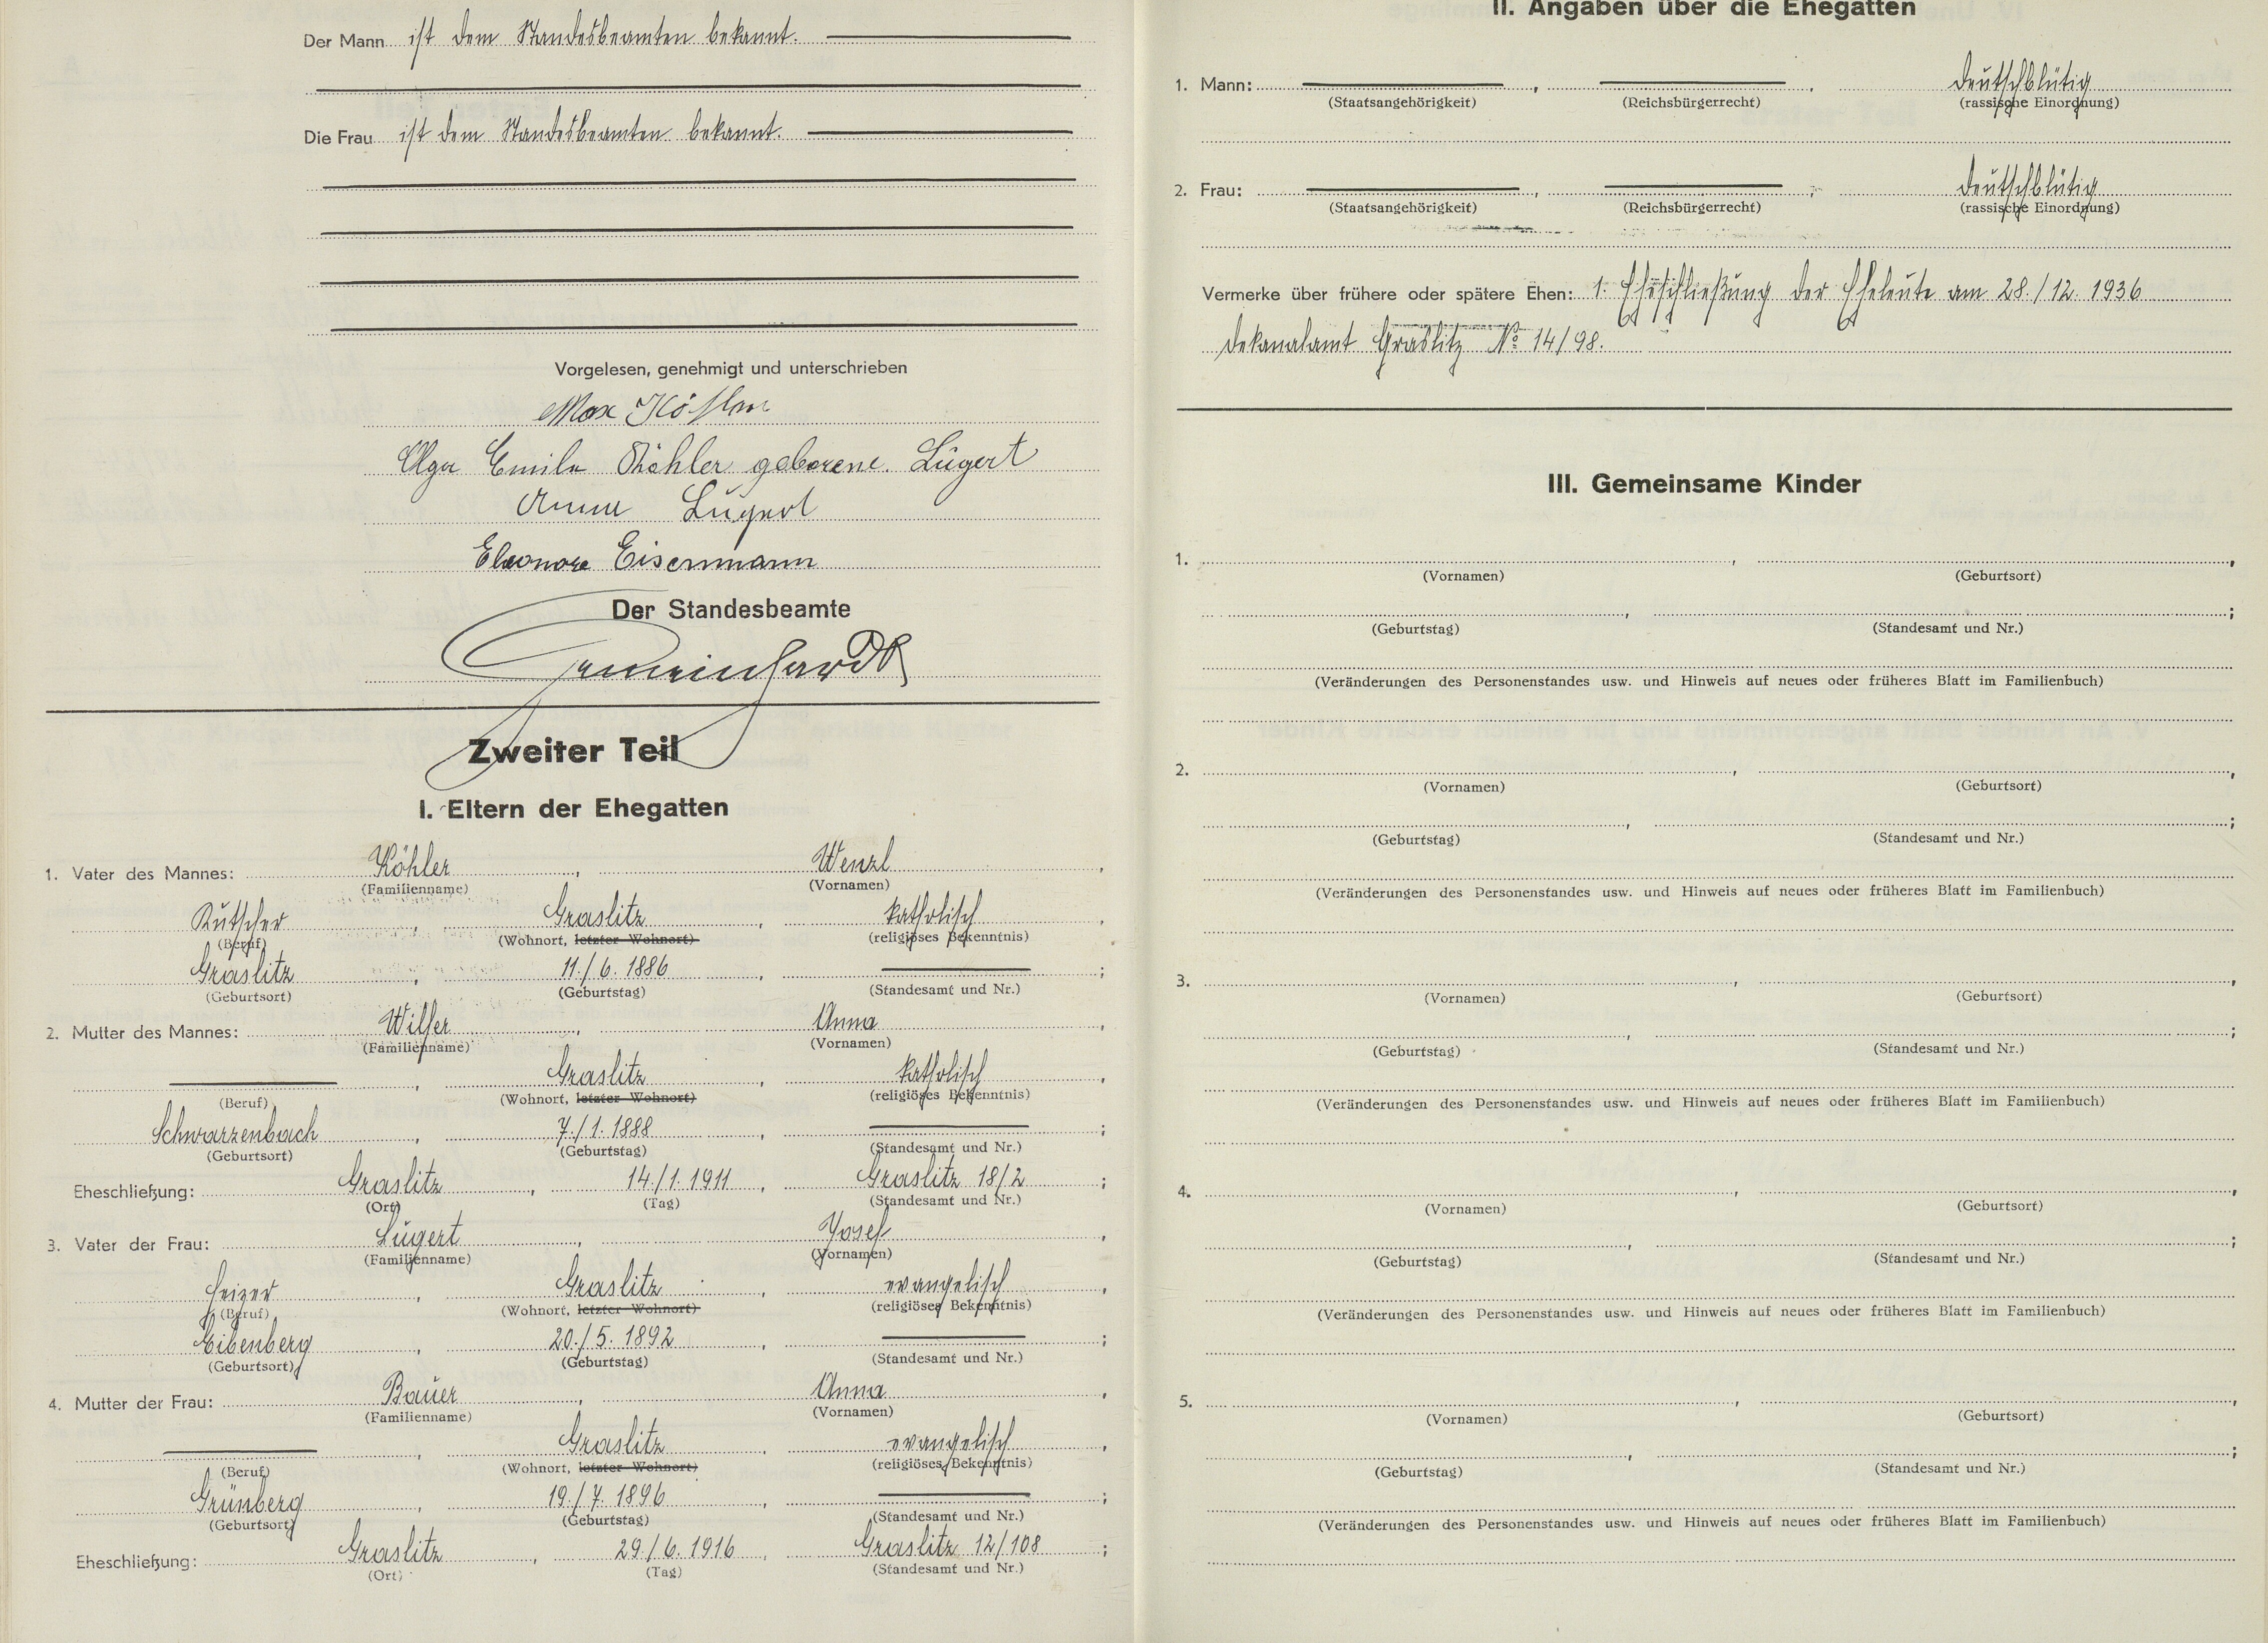 Der Mann ist dem Standesbeamten bekannt.
Die Frau ist dem Standesbeamten bekannt.
Vorgelesen, genehmigt und unterschrieben
Max Köhler
Olga Emila Köhler geborene Lugert
Anna Lugert
Eleonore Eisenmann
Der Standesbeamte
Gemeinhardt
Zweiter Teil
I. Eltern der Ehegatten
1. Vater des Mannes: Köhler, Wenzl,
(Familienname) (Vornamen)
Kutscher, Graslitz, katholisch,
(Beruf) (Wohnort, letzter Wohnort) (religiöses Bekenntnis)
Graslitz, 11./6. 1886, ;
(Geburtsort) (Geburtstag) (Standesamt und Nr.)
2. Mutter des Mannes: Wilfer, Anna,
(Familienname) (Vornamen)
, Graslitz, katholisch,
(Beruf) (Wohnort, letzter Wohnort) (religiöses Bekenntnis)
Schwarzenbach, 7./1. 1888, ;
(Geburtsort) (Geburtstag) (Standesamt und Nr.)
Eheschließung: Graslitz, 14./1. 1911, Graslitz 18/2;
(Ort) (Tag) (Standesamt und Nr.)
3. Vater der Frau: Lugert, Josef,
(Familienname) (Vornamen)
Heizer, Graslitz, evangelisch,
(Beruf) (Wohnort, letzter Wohnort) (religiöses Bekenntnis)
Eibenberg, 20./5. 1892, ;
(Geburtsort) (Geburtstag) (Standesamt und Nr.)
4. Mutter der Frau: Bauer, Anna,
(Familienname) (Vornamen)
, Graslitz, evangelisch,
(Beruf) (Wohnort, letzter Wohnort) (religiöses Bekenntnis)
Grünberg, 19./7. 1896, ;
(Geburtsort) (Geburtstag) (Standesamt und Nr.)
Eheschließung: Graslitz, 29./6. 1916, Graslitz 12/108;
(Ort) (Tag) (Standesamt und Nr.)
II. Angaben über die Ehegatten
1. Mann: , , deutschblütig
(Staatsangehörigkeit) (Reichsbürgerrecht) (rassische Einordnung)
2. Frau: , , deutschblütig
(Staatsangehörigkeit) (Reichsbürgerrecht) (rassische Einordnung)
Vermerke über frühere oder spätere Ehen: 1. Eheschließung der Eheleute am 28./12. 1936
Dekanalamt Graslitz No 14/98.
III. Gemeinsame Kinder
1. , ,
(Vornamen) (Geburtsort)
, ;
(Geburtstag) (Standesamt und Nr.)
(Veränderungen des Personenstandes usw. und Hinweis auf neues oder früheres Blatt im Familienbuch)
2. , ,
(Vornamen) (Geburtsort)
, ;
(Geburtstag) (Standesamt und Nr.)
(Veränderungen des Personenstandes usw. und Hinweis auf neues oder früheres Blatt im Familienbuch)
3. , ,
(Vornamen) (Geburtsort)
, ;
(Geburtstag) (Standesamt und Nr.)
(Veränderungen des Personenstandes usw. und Hinweis auf neues oder früheres Blatt im Familienbuch)
4. , ,
(Vornamen) (Geburtsort)
, ;
(Geburtstag) (Standesamt und Nr.)
(Veränderungen des Personenstandes usw. und Hinweis auf neues oder früheres Blatt im Familienbuch)
5. , ,
(Vornamen) (Geburtsort)
, ;
(Geburtstag) (Standesamt und Nr.)
(Veränderungen des Personenstandes usw. und Hinweis auf neues oder früheres Blatt im Familienbuch)